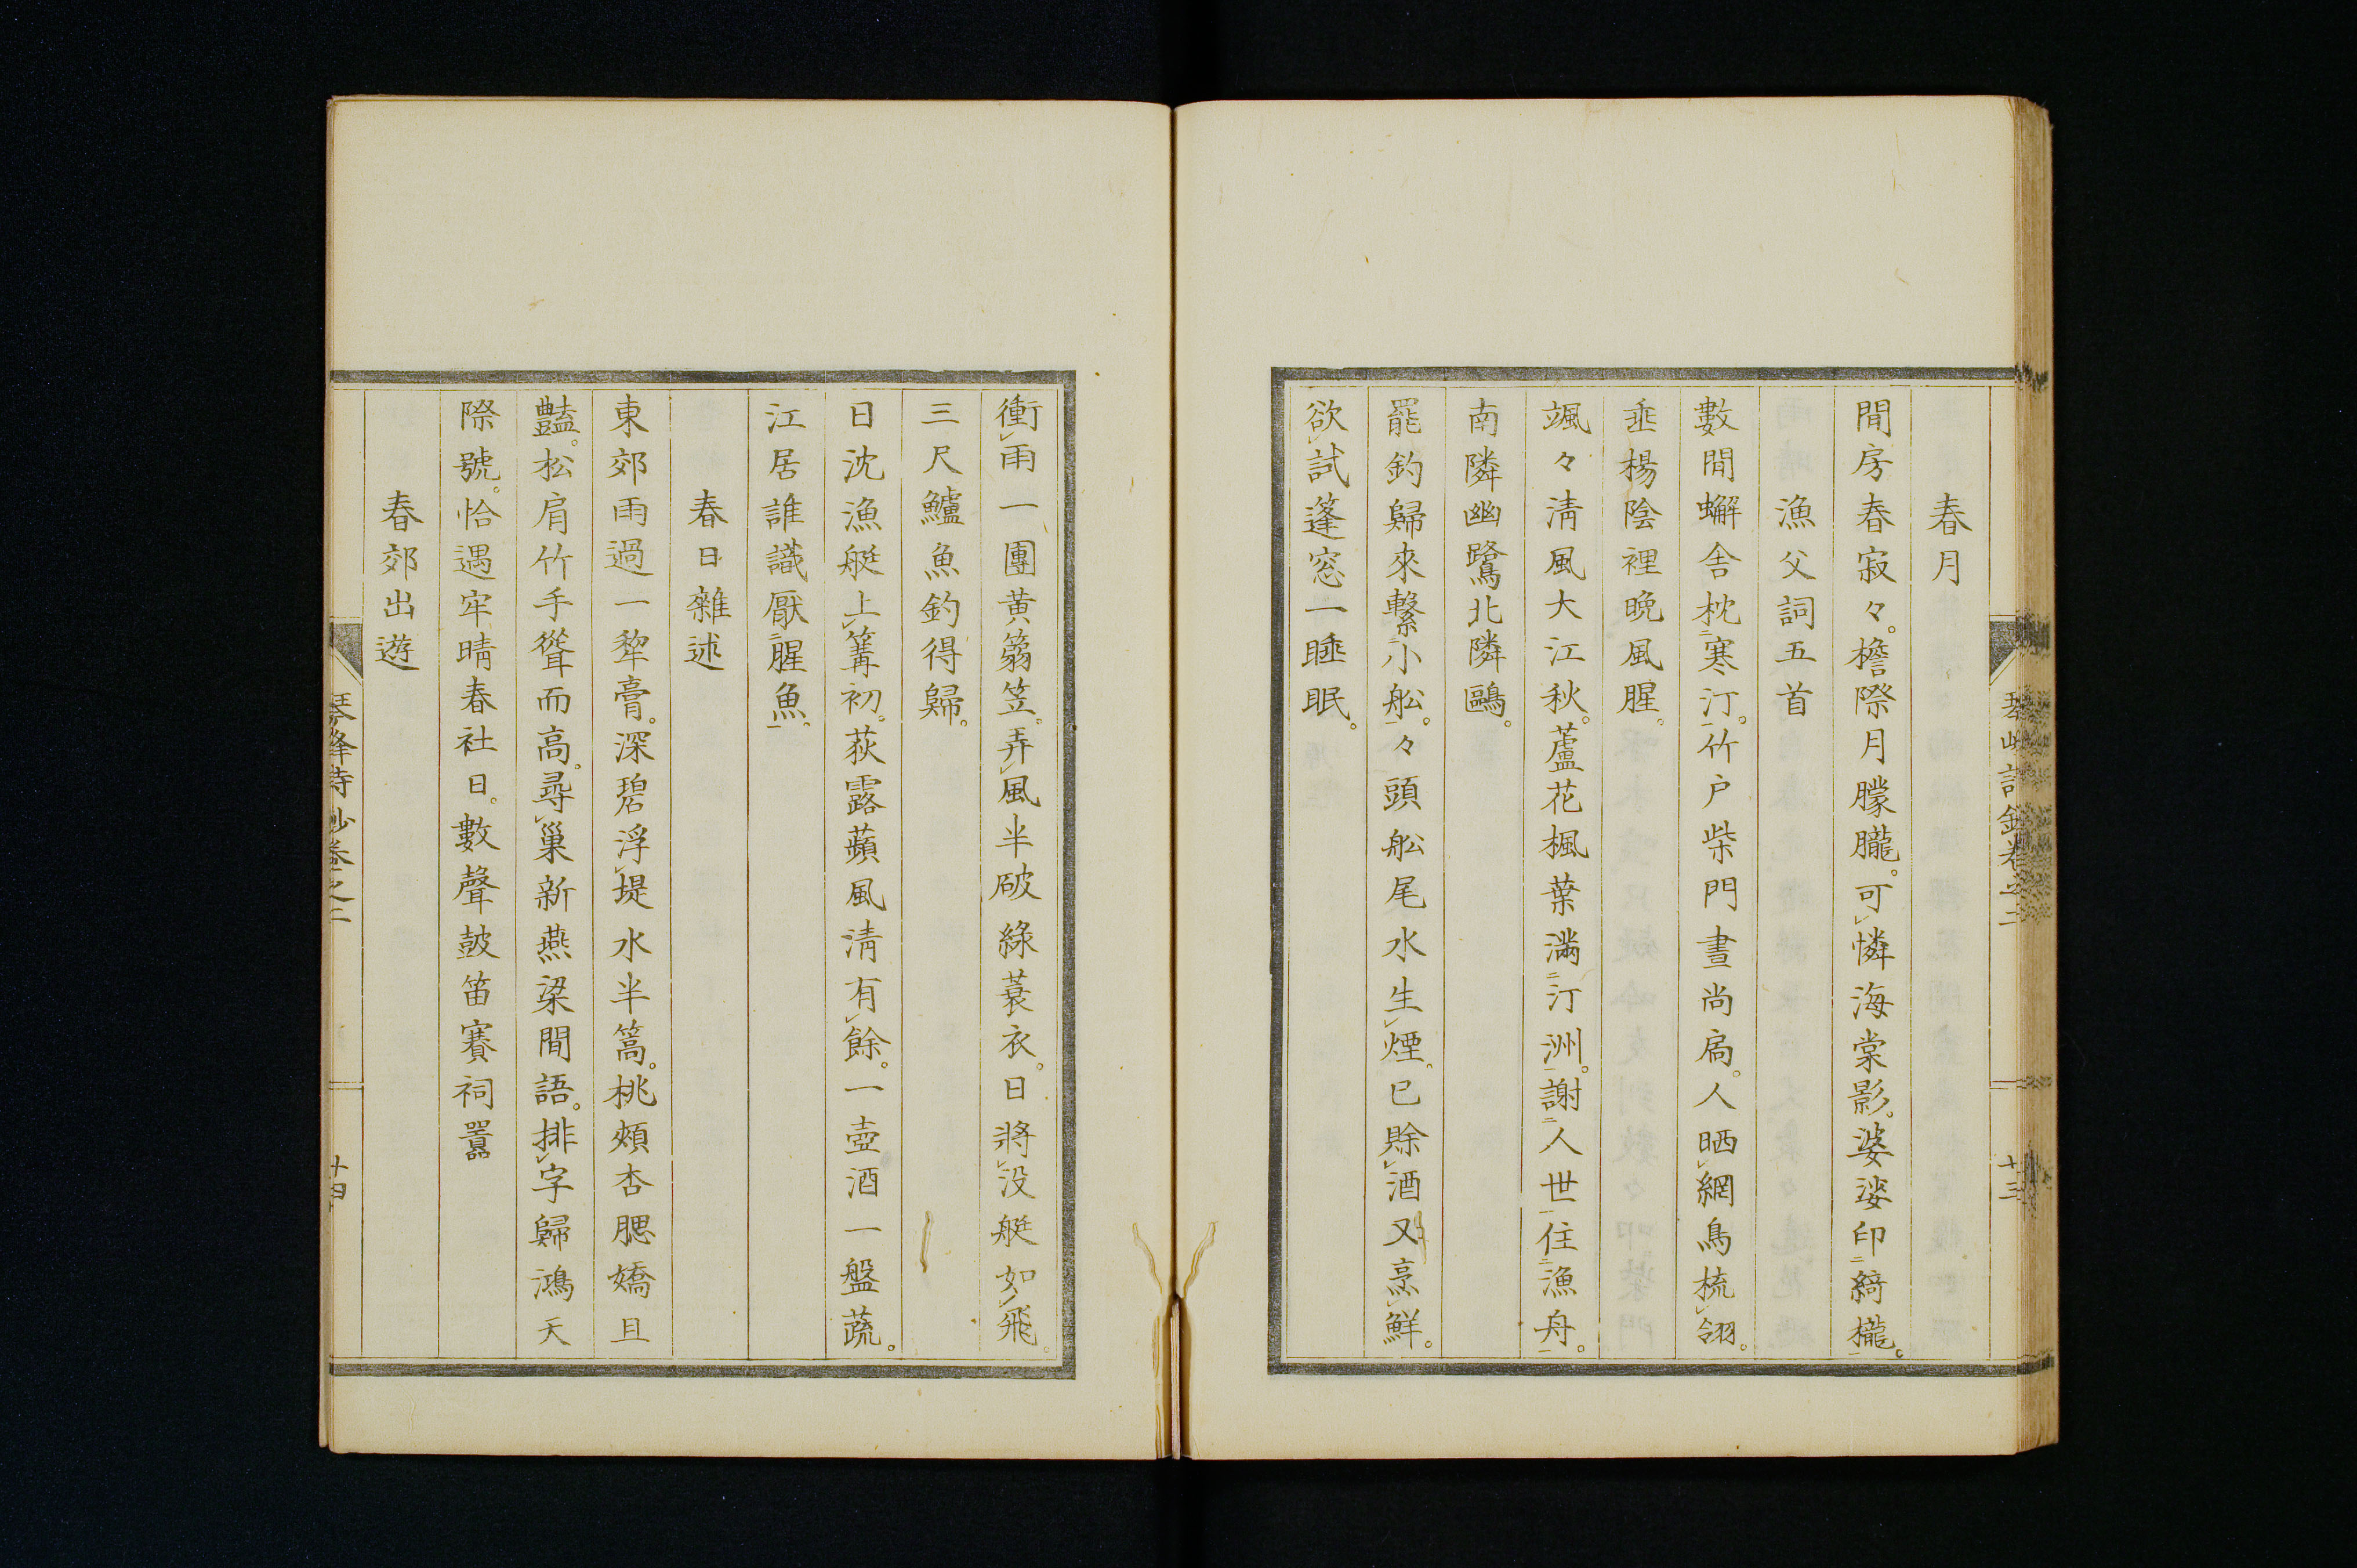 春月
間房春寂々。檐際月朦朧。可憐海棠影。婆娑印綺櫳。
漁父詞五首
數間蠏舎枕寒汀。竹户柴門晝尚扃。人晒網鳥梳翎。
垂楊陰裡晩風腥。
颯々淸風大江秋。蘆花楓葉滿汀洲。謝人世住漁舟。
南隣幽鷺北隣鷗。
罷釣歸來繫小舩。々頭舩尾水生煙。已賖酒又烹鮮。
欲試篷窓一睡眠。
十三
衝雨一團黄篛笠。弄風半破綠蓑衣。日將没艇如飛。
三尺鱸魚釣得歸。
日沈漁艇上篝初。荻露蘋風淸有餘。一壺酒一盤蔬。
江居誰識厭腥魚。
春日雜述
東郊雨過一犂膏。深碧浮堤水半篙。桃頰杏腮嬌且
豔。松肩竹手聳而高。尋巢新燕梁間語。排字歸鴻天
際號。恰遇牢晴春社日。數聲鼓笛賽祠嚻
春郊出遊
琴峰詩鈔卷之二
十四